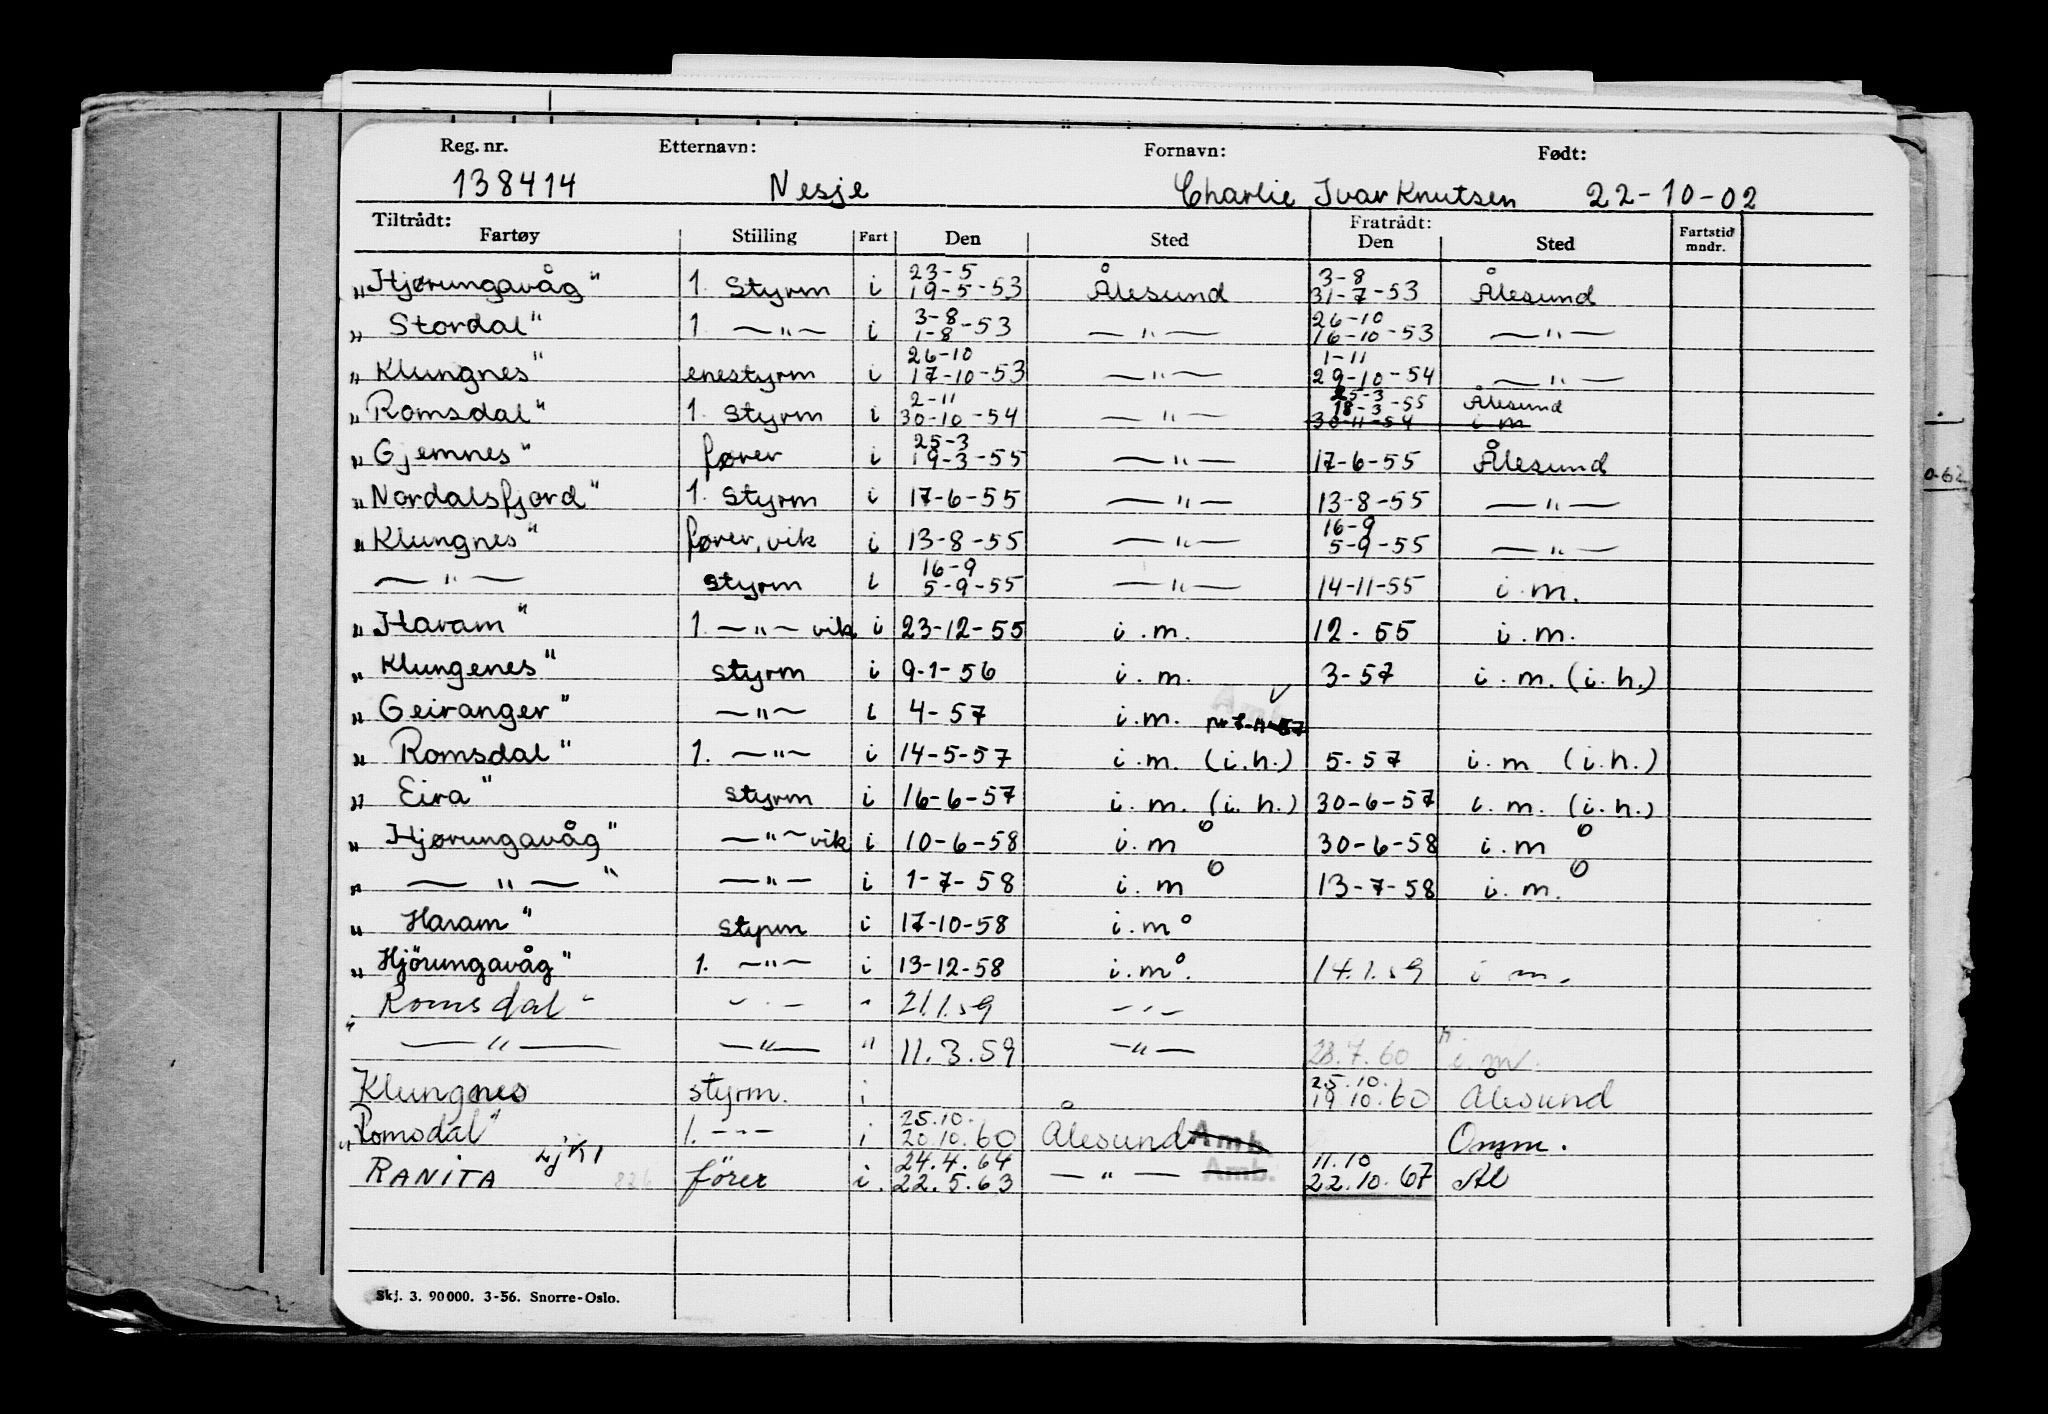 Reg. nr. Etternavn: Fornavn: Født:
138414 Nesje Charlie Ivar Knutsen 22-10-02
Tiltrådt: Fratrådt:
Fartøy Stilling Fart Den Sted Den Sted Fartstid mndr.
23-5 3-8
„Hjørungavåg" 1. Styrm i 19-5-53 Ålesund 31-7-53 Ålesund
3-8 26-10
„ Stordal" 1. —"— i 1-8-53 —"— 16-10-53 —"—
26-10 1-11
„ Klungnes" enestyrm i 17-10-53 —"— 29-10-54 —"—
2-11 25-3
18-3-55 Ålesund
„Romsdal" 1. Styrm i 30-10-54 —"— 30-11-54 i m
25-3
„Gjemnes" fører i 19-3-55 —"— 17-6-55 Ålesund
„Nordalsfjord" 1. Styrm i 17-6-55 —"— 13-8-55 —"—
16-9
„Klungnes" fører, vik i 13-8-55 —"— 5-9-55 —"—
16-9
—"— styrm i 5-9-55 —"— 14-11-55 i.m.
„Haram" 1. —"— vik i 23-12-55 i.m. 12-55 i.m.
„Klungenes" styrm i 9-1-56 i.m. 3-57 i.m. (i.h.)
„Geiranger" —"— i 4-57 i.m.
„ Romsdal" 1. —"— i 14-5-57 i.m. (i.h.) 5-57 i.m (i.h.)
„ Eira" styrm i 16-6-57 i.m. (i.h.) 30-6-57 i.m. (i.h.)
„ Hjørungavåg" —"— vik i 10-6-58 i.m o 30-6-58 i.m o
„ —"—" —"— i 1-7-58 i.m o 13-7-58 i.m. o
„ Haram" styrm i 17-10-58 i.m o
„Hjörungavåg" 1. —"— i 13-12-58 i.m o. 14.1.59 i m.
„ Romsdal" —"— " 21.1.59 —"—
—"— —"— " 11.3.59 —"— 28.7.60 i.m.
25.10.
Klungnes styrm. i 19.10.60 Ålesund
25.10.
„Romsdal" 1. —"— i 20.10.60 Ålesund Amb. Omm.
24.4.64 11.10
RANITA LjKI 826 förer i. 22.5.63 —"— Amb. 22.10.67 Ål
Skj. 3. 90000. 3-56. Snorre-Oslo.